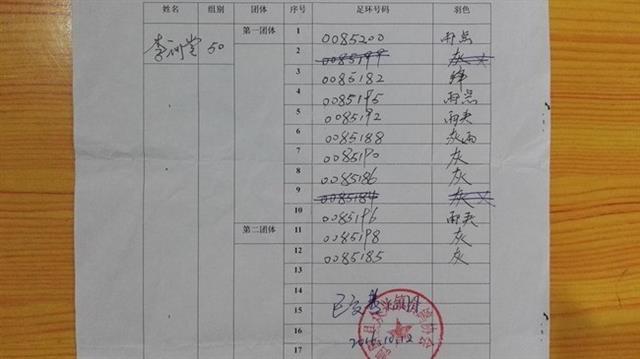 姓名 组别 团体 序号 足环号码 羽色
李 堂 50 第一团体 1 0085200 雨点
2 0085199 灰
3 0085182 绛
4 0085195 雨点
5 0085192 雨夹
6 0085188 灰雨
7 0085190 灰
8 0085186 灰
9 0085184 灰
10 0085196 雨夹
第二团体 11 0085198 灰
12 0085185 灰
13
14
15
16 2016.10.12
17